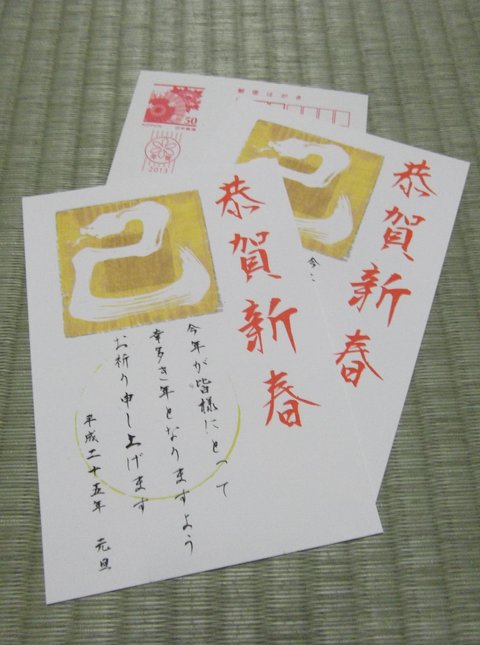 郵便はがき
50
NIPPON
日本郵便
2013
己
恭賀新春
今
己
恭賀新春
今年が皆様にとって
幸多き年となりますよう
お祈り申し上げます
平成二十五年 元旦